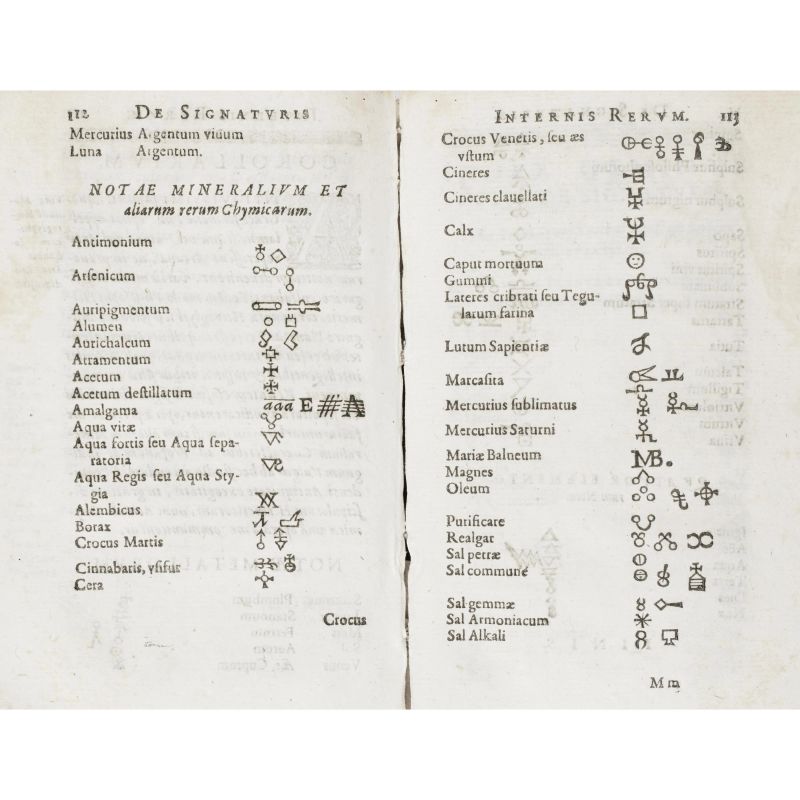 112 DE SIGNATVRIS
Mercurius Argentum viuum
Luna Argentum.
NOTAE MINERALIVM ET
aliarum rerum Chymicarum.
Antimonium
Arsenicum
Auripigmentum
Alumen
Aurichalcum
Atramentum
Acetum
Acetum destillatum
Amalgama aaa E
Aqua vitæ
Aqua fortis seu Aqua sepa-
ratoria
Aqua Regis seu Aqua Sty-
gia
Alembicus
Borax
Crocus Martis
Cinnabaris, vsifur
Cera
Crocus
INTERNIS RERVM. 113
Crocus Veneris, seu æs
vstum
Cineres
Cineres clauellati
Calx
Caput mortuum
Gummi
Lateres cribrati seu Tegu-
larum farina
Lutum Sapientiæ
Marcasita
Mercurius sublimatus
Mercurius Saturni
Mariæ Balneum MB.
Magnes
Oleum
Putificare
Realgar
Sal petræ
Sal commune
Sal gemmæ
Sal Armoniacum
Sal Alkali
M m